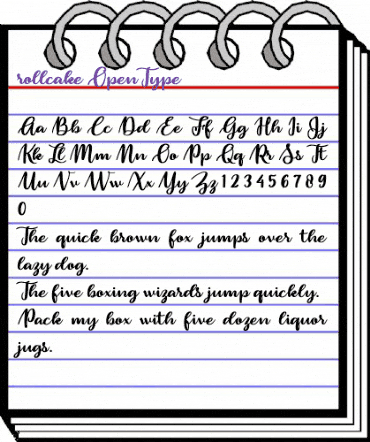 rollcake OpenType
Aa Bb Cc Dd Ee Ff Gg Hh Ii Jj
Kk Ll Mm Nn Oo Pp Qq Rr Ss Tt
Uu Vv Ww Xx Yy Zz 1 2 3 4 5 6 7 8 9
0
The quick brown fox jumps over the
lazy dog.
The five boxing wizards jump quickly.
Pack my box with five dozen liquor
jugs.